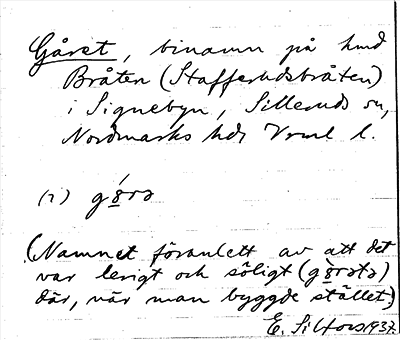 Gåret, binamn på hmd
Bråten (Stafferudsbråten)
i Signebyn, Sillerud sn,
Nordmarks hd, Vrml l.
(i) gǫ́rə
(Namnet föranlett av att det
var lerigt och söligt (gǫ̀rətə)
där, när man byggde stället.)
E. 1937.